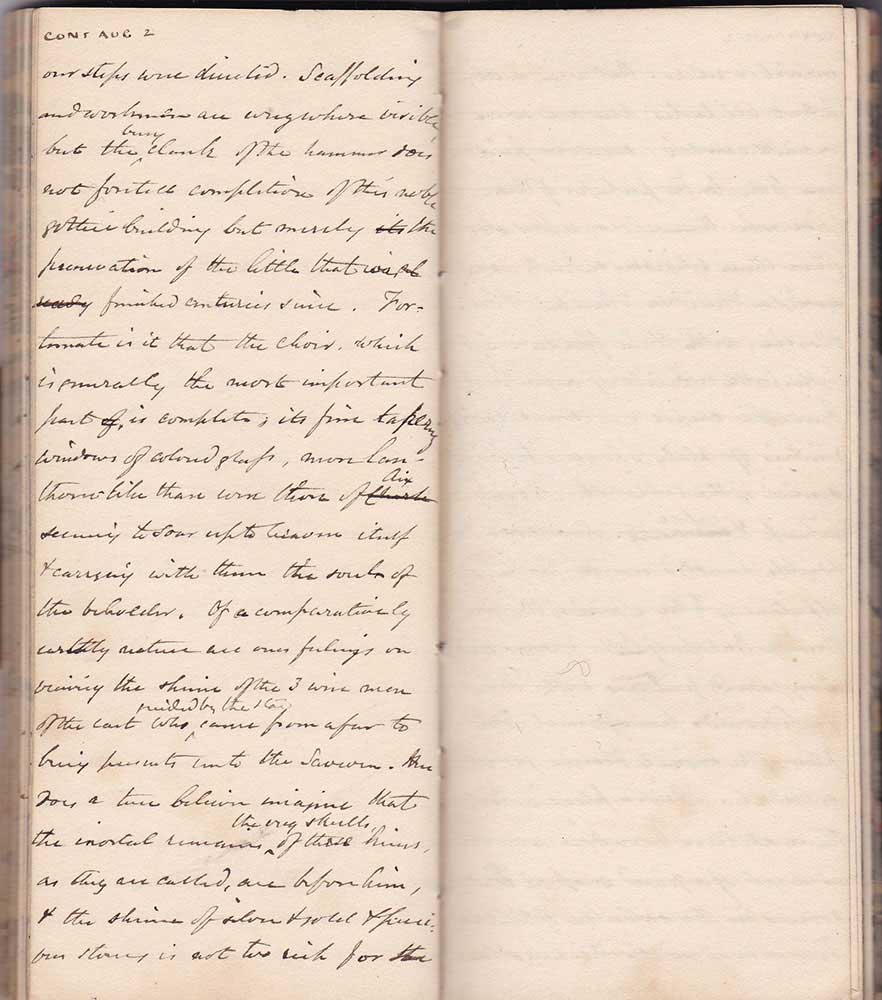 CONT AUG 2
our steps were directed. Scaffolding
and workmen are everywhere visible,
but the busy clank of the hammer does
not foretell completion of this noble
gothic building but merely its the
preservation of the little that was al
ready finished centuries since. For-
tunate is it that the choir, which
is generally the most important
part of, is complete; its fine tapering
windows of colored glass, more lan-
thorn like than were those of
Aix
seeming to soar up to heaven itself
& carrying with them the souls of
the beholder. Of a comparatively
earthly nature are ones feelings on
viewing the shrine of the 3 wise men
guided by the star
of the east who came from afar to
bring presents unto the Saviour. Here
does a true believer imagine that
the very skulls,
the mortal remains of these kings,
as they are called, are before him,
& the shrine of silver & gold & preci-
ous stones is not too rich for the